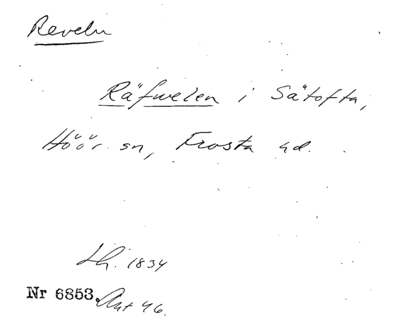 Reveln
Räfwelen i Sätofta,
Höör sn, Frosta hd.
Lh. 1834
Nr 6853. Ant 46.